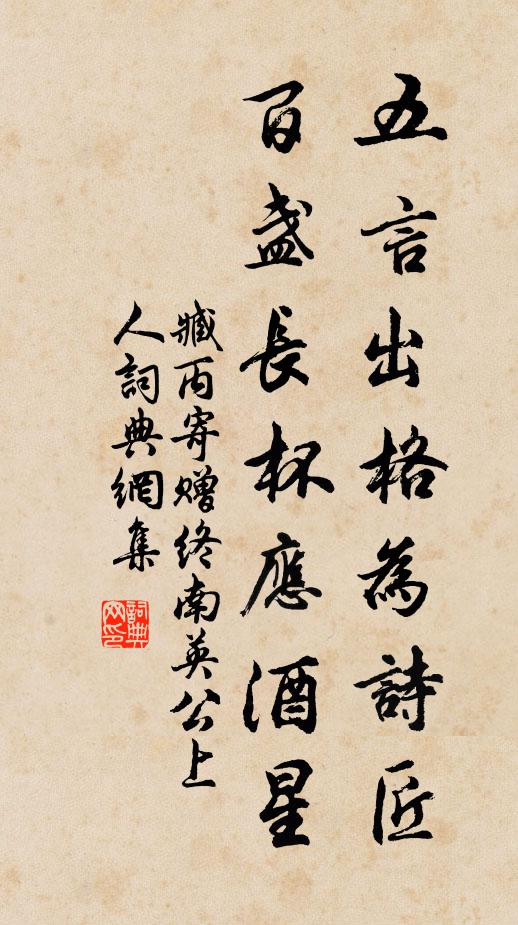 五言出格為詩匠
百盞長杯應酒星
臧丙寄贈終南英公上
人詞典網集
詞典
网印